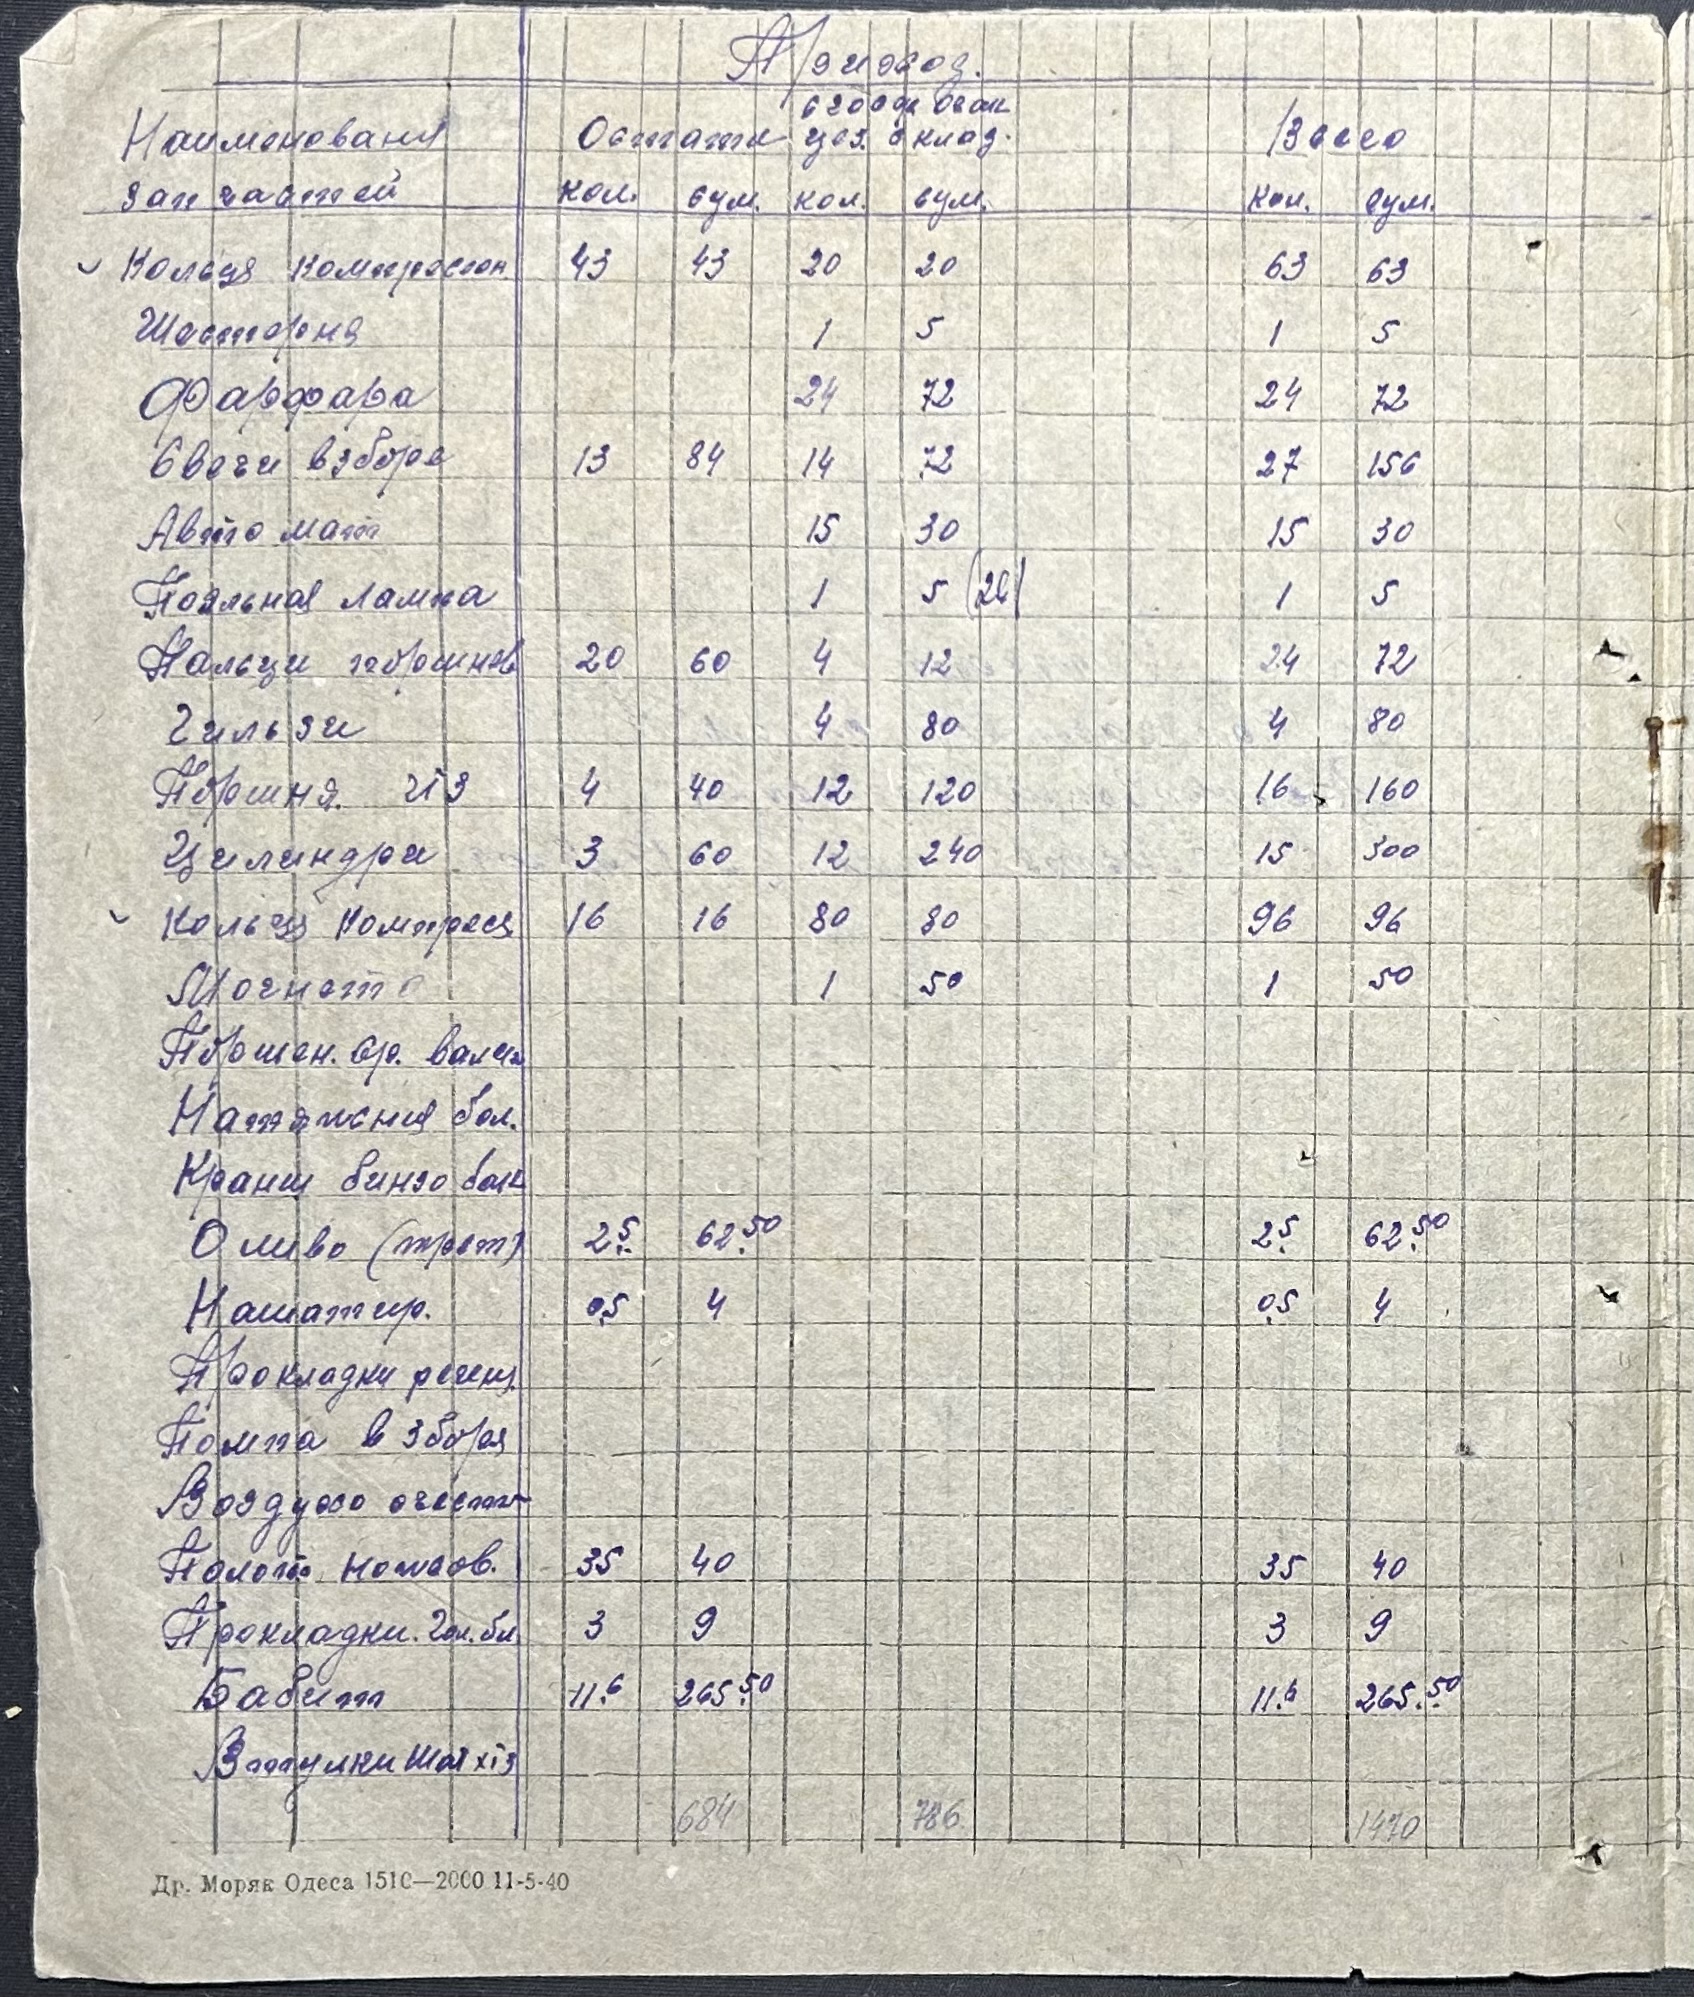 Приход.
с госф бак
Наименования Остаток цех. склад. Всего
запчастей кол. сум. кол. сум. кол. сум.
Кольця компресион 43 43 20 20 63 63
Шестерня 1 5 1 5
Фарфара 24 72 24 72
Свечи взборе 13 84 14 72 27 156
Автомат 15 30 15 30
Пояльная лампа 1 5 1 5
Пальци поршнев 20 60 4 12 24 72
Гильзи 4 80 4 80
Поршня ЧТЗ 4 40 12 120 16 160
Цилиндри 3 60 12 240 15 300
Кольця компрес 16 16 80 80 96 96
Магнето 1 50 1 50
Поршен. бр. валик
Натяжения бол.
Крани бинзо бак
Оливо (трет) 2.5 62.50 2.5 62.50
Нашатир. 0,5 4 0,5 4
Прокладки резин.
Помпа в зборя
Воздухо очест
Полотн ножов. 35 40 35 40
Прокладки. Гол. бл. 3 9 3 9
Бабит 11.6 265.50 11.6 265.50
Втулки Шат ХТЗ
684 786 1470
Др. Моряк Одеса 1510—2000 11-5-40